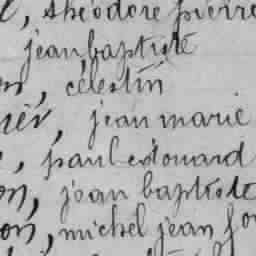 , théodore pierre
jean baptiste
, célestin
, jean marie
, paul edouard
on, jean baptiste
on, michel jean